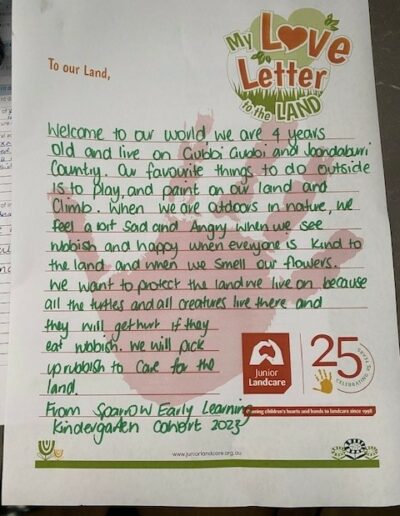 My Love
Letter
to the LAND
To our Land,
Welcome to our world we are 4 years
Old and live on Gubbi Gubbi and Joondaburi
Country. Our favourite things to do outside
is to play, and paint on our land and
Climb. When we are outdoors in nature, we
feel a bit Sad and Angry when we see
rubbish and happy when everyone is kind to
the land and when we smell our flowers.
We want to protect the land we live on because
all the turtles and all creatures live there and
they will get hurt if they
eat rubbish. We will pick
up rubbish to care for the
land.
From Sparrow Early Learning
Kindergarten Cohort 2023
Junior
Landcare
25
CELEBRATING 25 YEARS
Joining children's hearts and hands to landcare since 1998
www.juniorlandcare.org.au